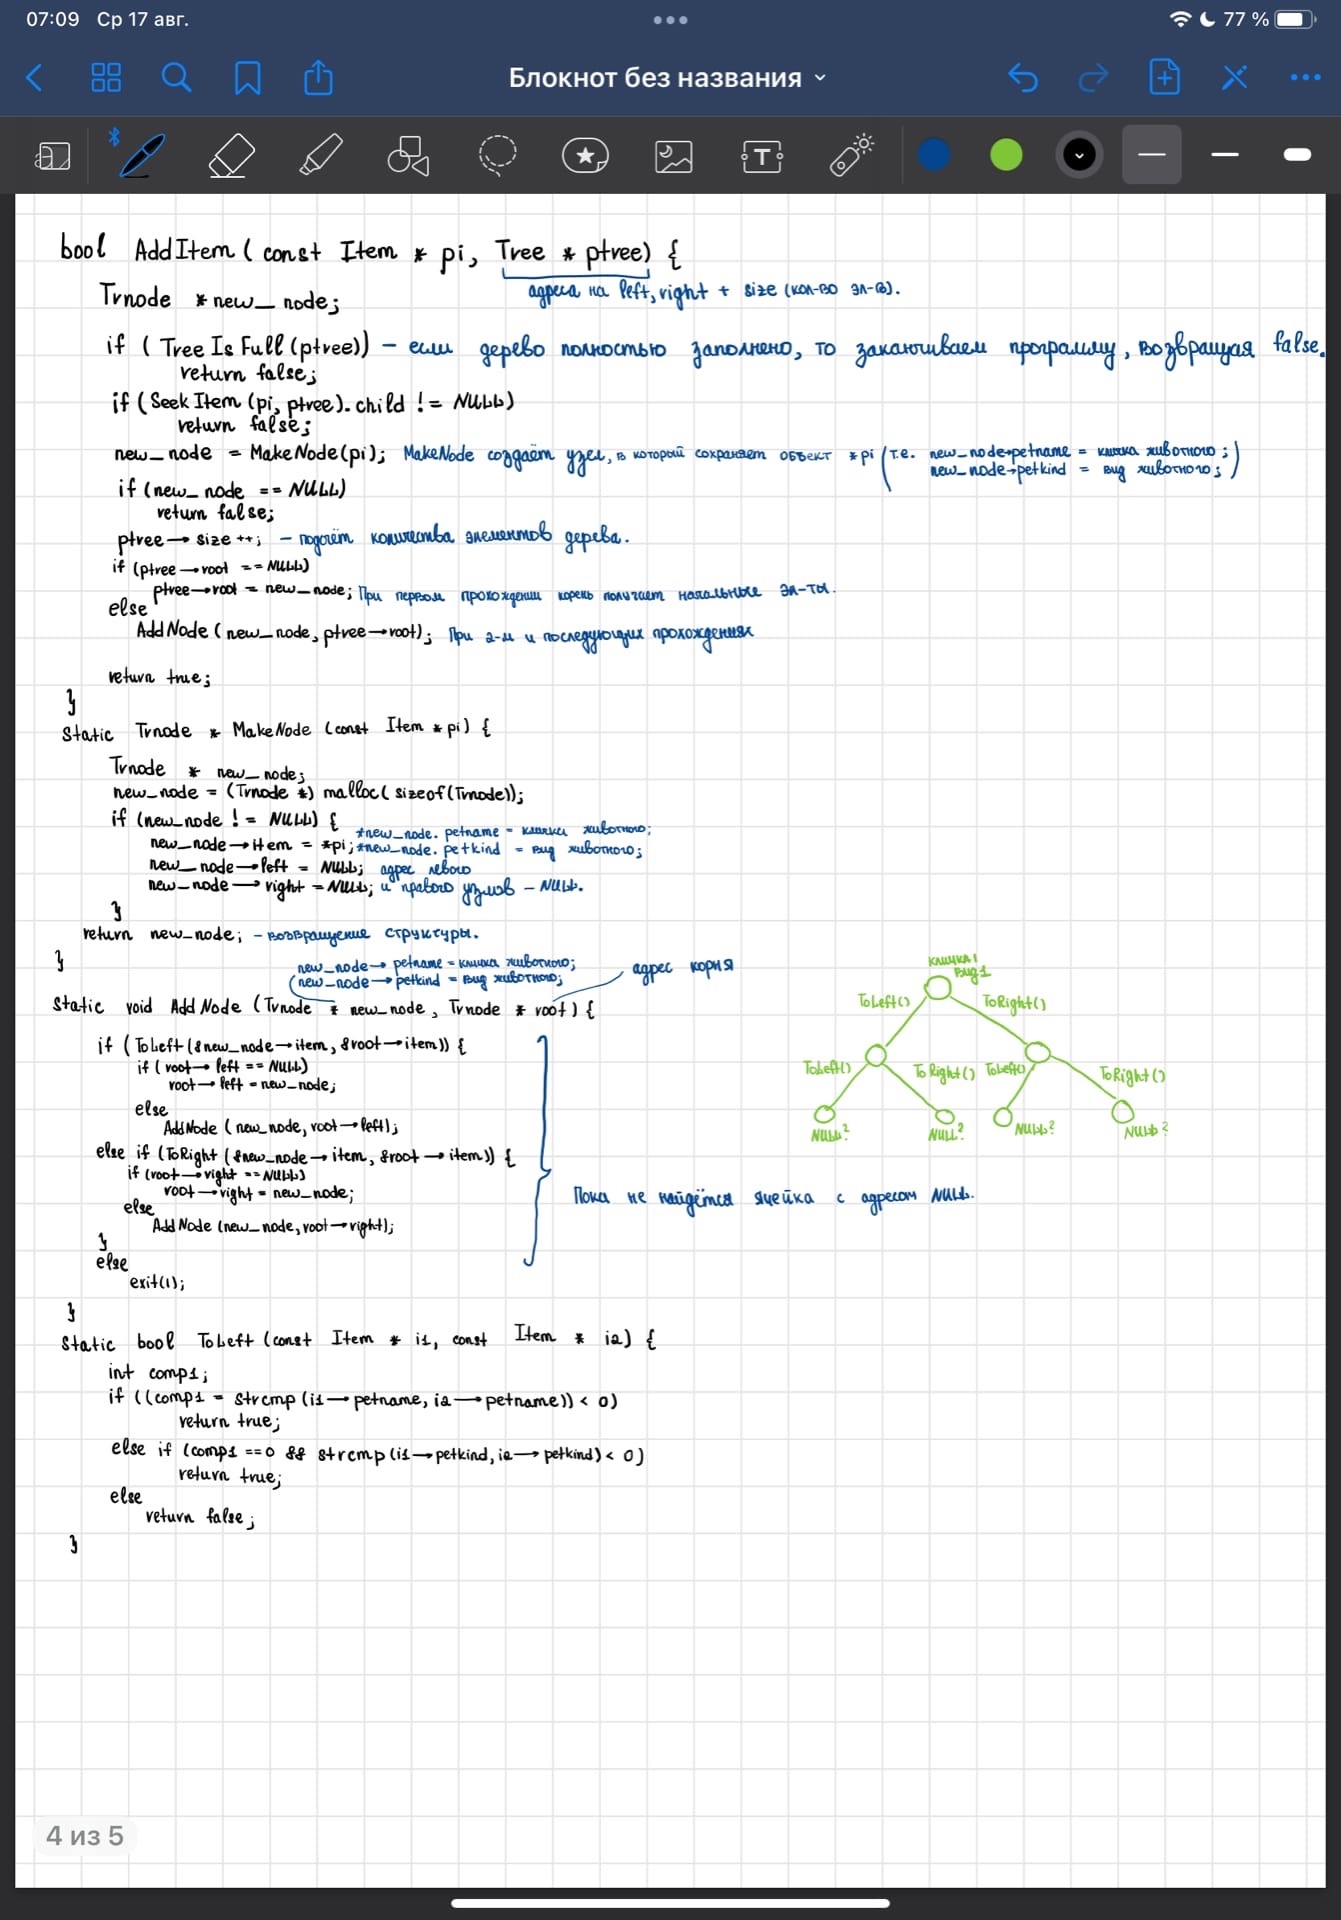 07:09 Ср 17 авг.
77 %
Блокнот без названия
bool AddItem ( const Item * pi, Tree * ptree) {
адреса на left, right + size (кол-во эл-в).
Trnode * new_node;
if ( Tree Is Full (ptree)) – если дерево полностью заполнено, то заканчиваем программу, возвращая false.
return false;
if ( Seek Item (pi, ptree). child != NULL)
return false;
new_node = MakeNode(pi); MakeNode создаёт узел, в который сохраняет объект *pi (т.е. new_node→petname = кличка животного;
new_node→petkind = вид животного;)
if (new_node == NULL)
return false;
ptree → size ++; – подсчёт количества элементов дерева.
if (ptree → root == NULL)
ptree→root = new_node; При первом прохождении корень получает начальные эл-ты.
else
AddNode ( new_node, ptree→root); При 2-м и последующих прохождениях
return true;
}
Static Trnode * MakeNode (const Item * pi) {
Trnode * new_node;
new_node = (Trnode *) malloc( sizeof(Trnode));
if (new_node != NULL) {
*new_node. petname = кличка животного;
new_node → item = *pi; *new_node. petkind = вид животного;
new_node → left = NULL; адрес левого
new_node → right = NULL; и правого узлов – NULL.
}
return new_node; – возвращение структуры.
}
new_node → petname = кличка животного;
(new_node → petkind = вид животного;
адрес корня
Static void Add Node (Trnode * new_node, Trnode * root) {
if ( ToLeft (&new_node → item, &root → item)) {
if ( root → left == NULL)
root → left = new_node;
else
AddNode ( new_node, root → left);
else if (ToRight (&new_node → item, &root → item)) {
if (root → right == NULL)
root → right = new_node;
else
Add Node (new_node, root → right);
}
else
exit(1);
}
Пока не найдётся ячейка с адресом NULL.
кличка1
вид1
ToLeft() ToRight()
ToLeft() To Right() ToLeft() ToRight()
NULL? NULL? NULL? NULL?
Static bool ToLeft (const Item * i1, const Item * i2) {
int comp1;
if ((comp1 = strcmp (i1 → petname, i2 → petname)) < 0)
return true;
else if (comp1 ==0 && strcmp (i1 → petkind, i2 → petkind) < 0)
return true;
else
return false;
}
4 из 5